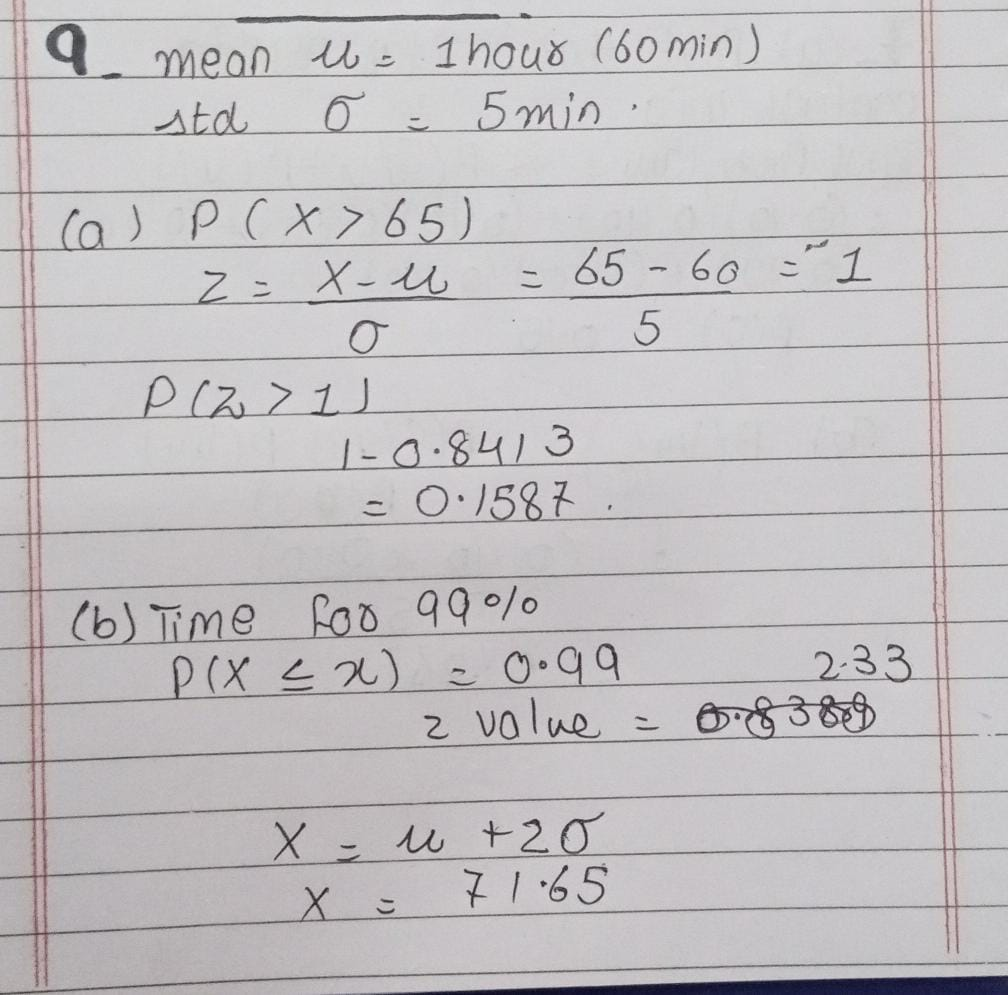 9. mean μ = 1 hour (60 min)
std σ = 5 min.
(a) P(X > 65)
z = (X - μ)/σ = (65 - 60)/5 = 1
P(z > 1)
1 - 0.8413
= 0.1587.
(b) Time for 99%
P(X ≤ x) = 0.99
2.33
z value =
X = μ + zσ
X = 71.65